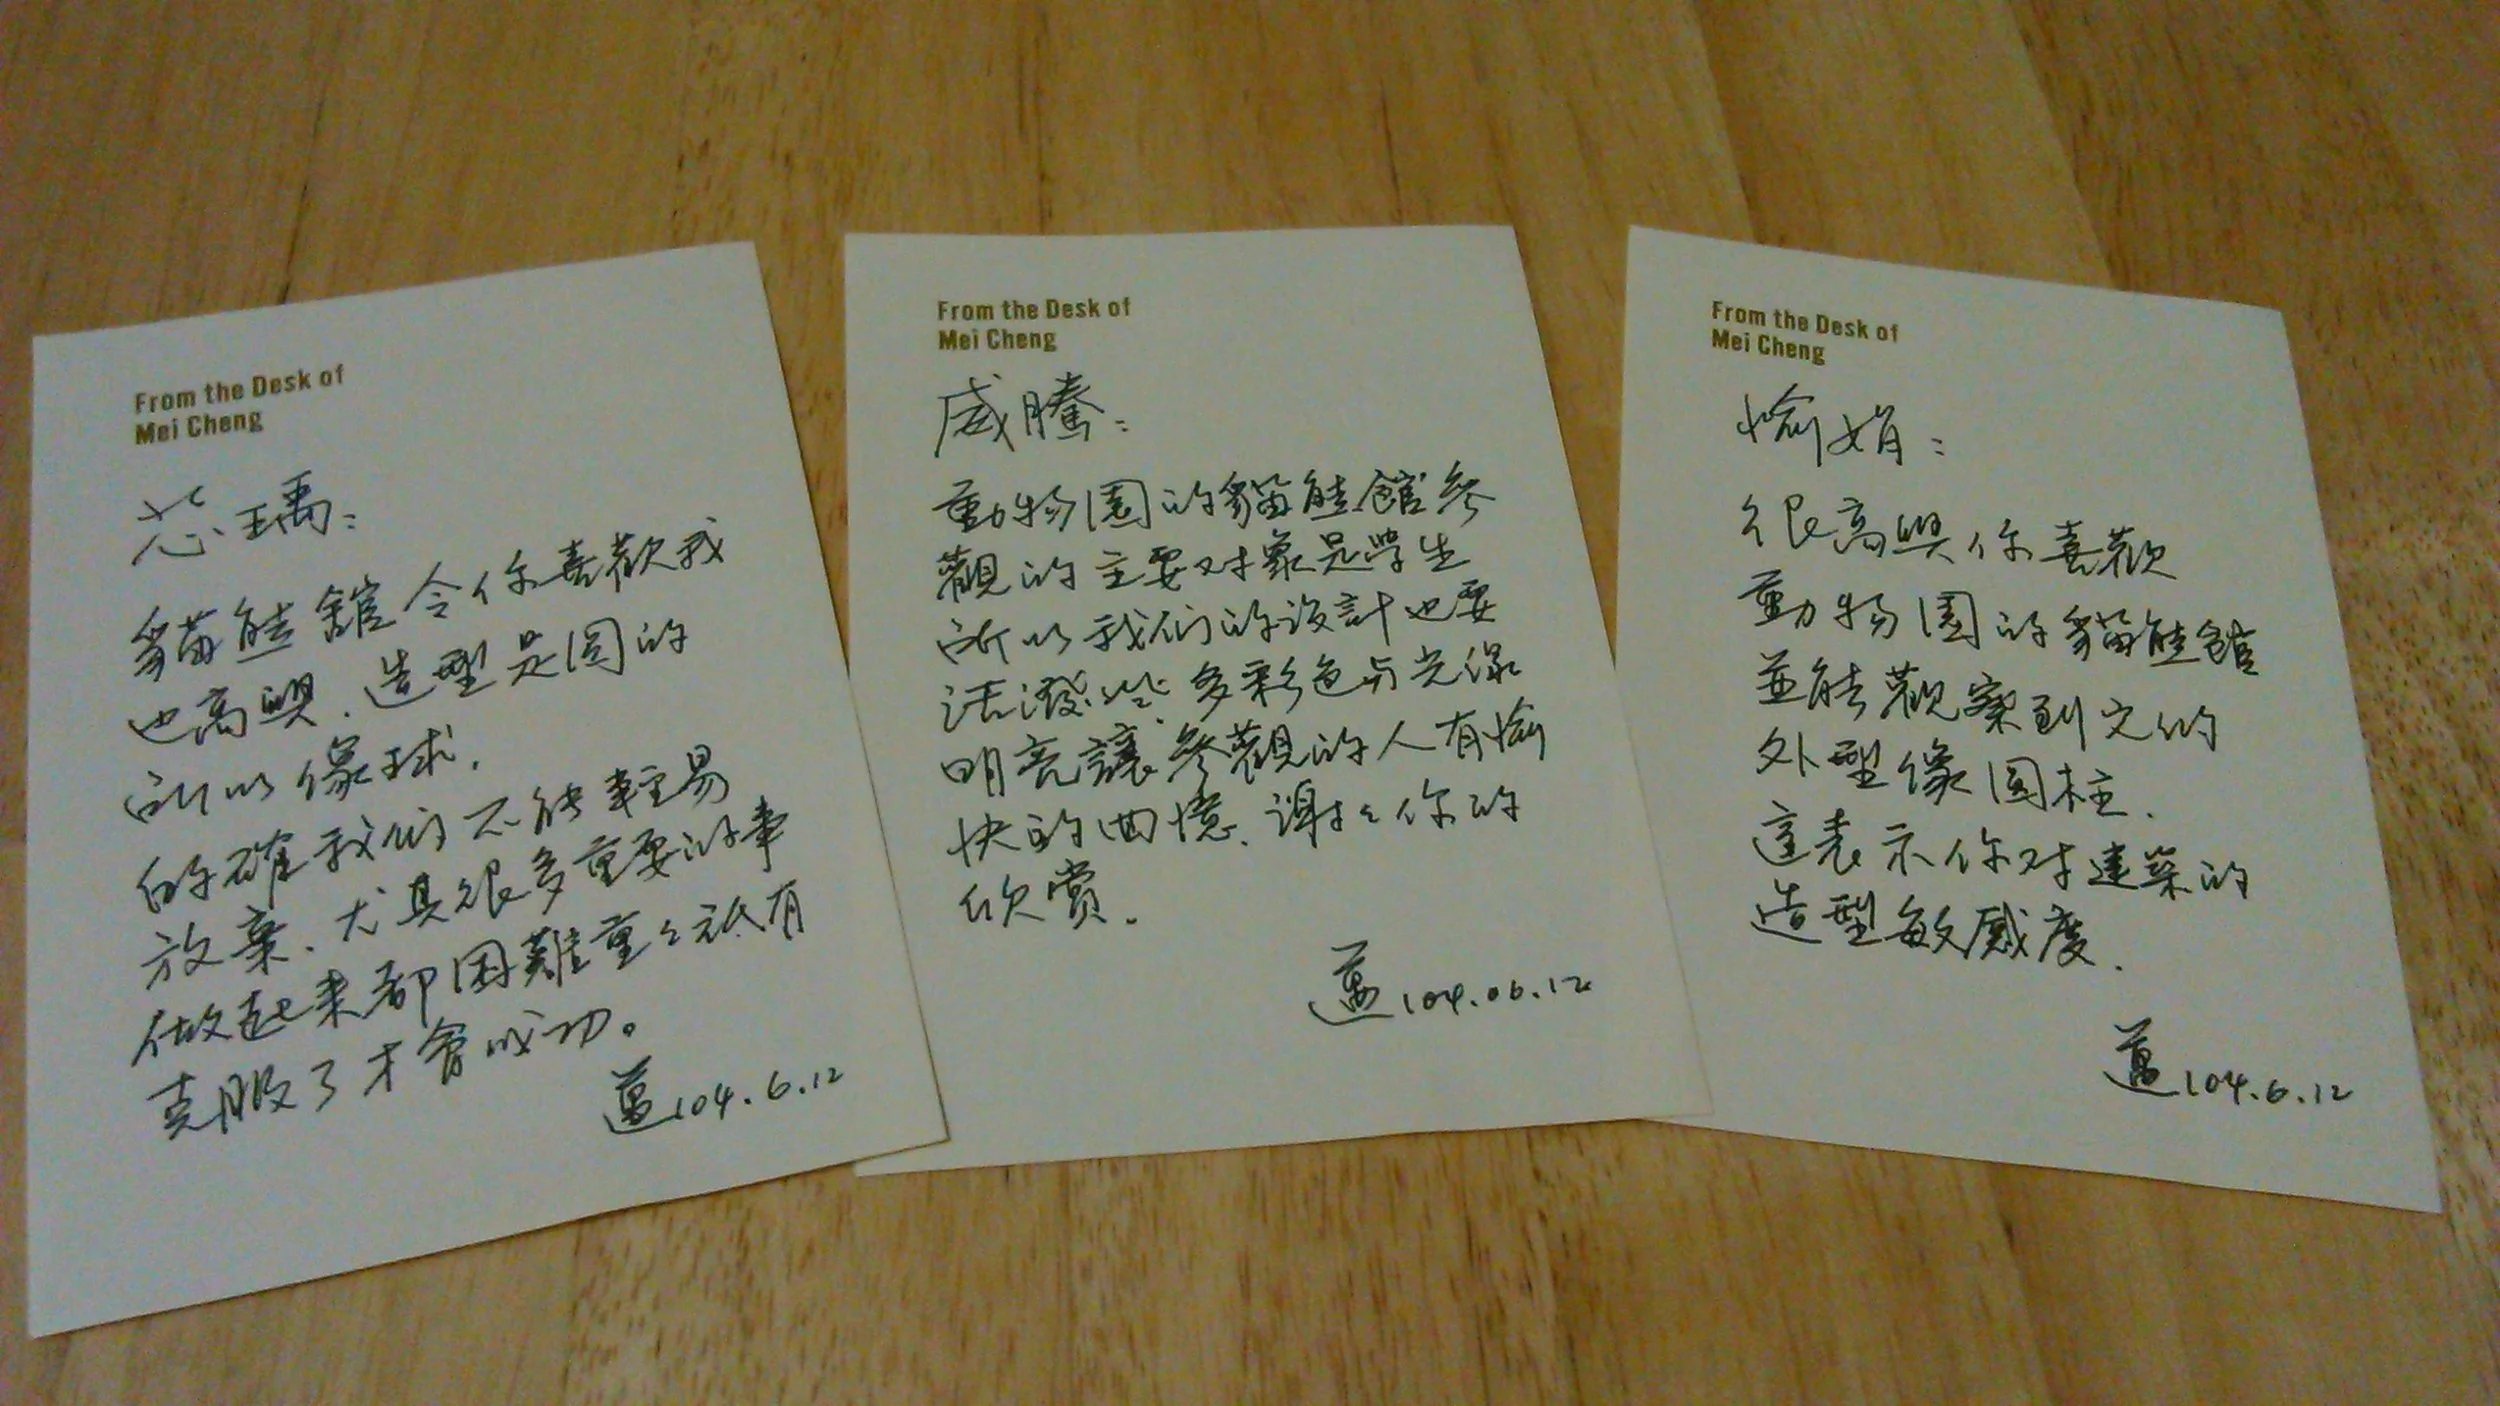 From the Desk of
Mei Cheng
芯瑀：
貓熊館令你喜歡我
也高興．造型是圓的
所以像球．
的確我们不能輕易
放棄．尤其很多重要的事
做起來都困難重々祇有
克服了才會成功。
邁104.6.12
From the Desk of
Mei Cheng
威騰：
動物園的貓熊館參
觀的主要对象是學生
所以我们的設計也要
活潑些多彩色与光線
明亮讓參觀的人有愉
快的回憶．謝々你的
欣賞．
邁104.06.12
From the Desk of
Mei Cheng
愉娟：
很高興你喜歡
動物園的貓熊館
並能觀察到它的
外型像圓柱．
這表示你对建築的
造型敏感度．
邁104.6.12